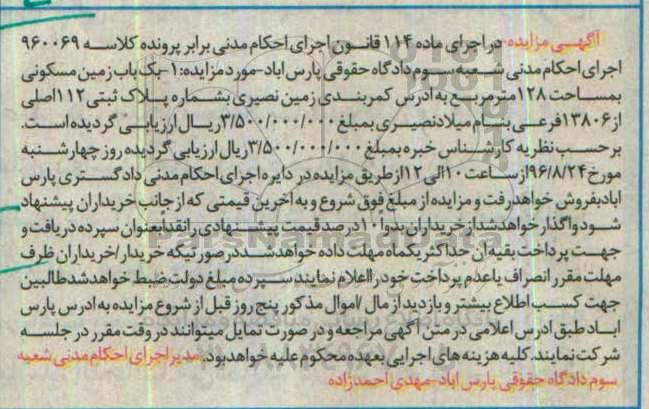 آگهی مزایده در اجرای ماده ۱۱۴ قانون اجرای احکام مدنی برابر پرونده کلاسه ۹۶۰۰۶۹
اجرای احکام مدنی شعبه سوم دادگاه حقوقی پارس اباد-مورد مزایده:۱-یک باب زمین مسکونی
بمساحت ۱۲۸ مترمربع به ادرس کمربندی زمین نصیری بشماره پلاک ثبتی ۱۱۲اصلی
از۱۳۸۰۶فرعی بنام میلاد نصیری بمبلغ ۳/۵۰۰/۰۰۰/۰۰۰ریال ارزیابی گردیده است.
برحسب نظریه کارشناس خبره بمبلغ ۳/۵۰۰/۰۰۰/۰۰۰ریال ارزیابی گردیده روز چهارشنبه
مورخ۹۶/۸/۲۴از ساعت ۱۰الی ۱۲از طریق مزایده در دایره اجرای احکام مدنی دادگستری پارس
ابادبفروش خواهد رفت و مزایده از مبلغ فوق شروع و به اخرین قیمتی که از جانب خریداران پیشنهاد
شود واگذار خواهد شد از خریداران بدوا ۱۰ درصد قیمت پیشنهادی را نقدا بعنوان سپرده دریافت و
جهت پرداخت بقیه ان حداکثر یکماه مهلت داده خواهد شد در صورتیکه خریدار/خریداران ظرف
مهلت مقرر انصراف یاعدم پرداخت خود را اعلام نمایند سپرده مبلغ دولت ضبط خواهد شد طالبین
جهت کسب اطلاع بیشتر و بازدید از مال /اموال مذکور پنج روز قبل از شروع مزایده به ادرس پارس
اباد طبق ادرس اعلامی در متن آگهی مراجعه و در صورت تمایل میتوانند در وقت مقرر در جلسه
شرکت نمایند. کلیه هزینه های اجرایی بعهده محکوم علیه خواهد بود. مدیر اجرای احکام مدنی شعبه
سوم دادگاه حقوقی پارس اباد-مهدی احمدزاده
ParsNamadData